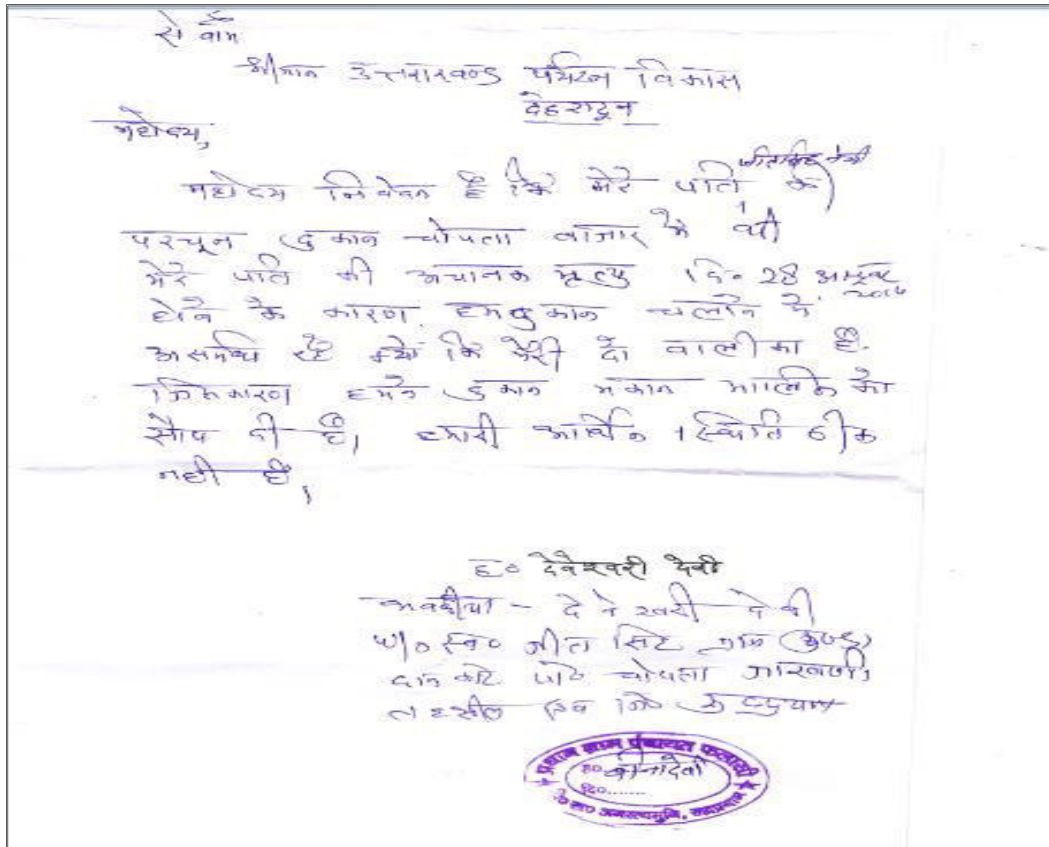 सेवाम
श्रीमान उत्तराखण्ड पर्यटन विकास
देहरादून
महोदय,
महोदय निवेदन है कि मेरे पति की
परचून दुकान चोपता बाजार मे थी
मेरे पति की अचानक मृत्यु दि० 28
होने के कारण हम दुकान चलाने मे
असमर्थ है क्यों कि मेरी दो बालीका है
जिस कारण हमने दुकान मकान मालिक को
सौप दी है, हमारी आर्थिक स्थिति ठीक
नही है,
ह० देवेश्वरी देवी
देवेश्वरी देवी
W/o स्व० जीत सिंह ग्राम
चोपता
तहसील जि०
प्रधान ग्राम पंचायत फलासी
ह० बीनादेवी
दि०........
वि० ख० अगस्त्यमुनि, रूद्रप्रयाग